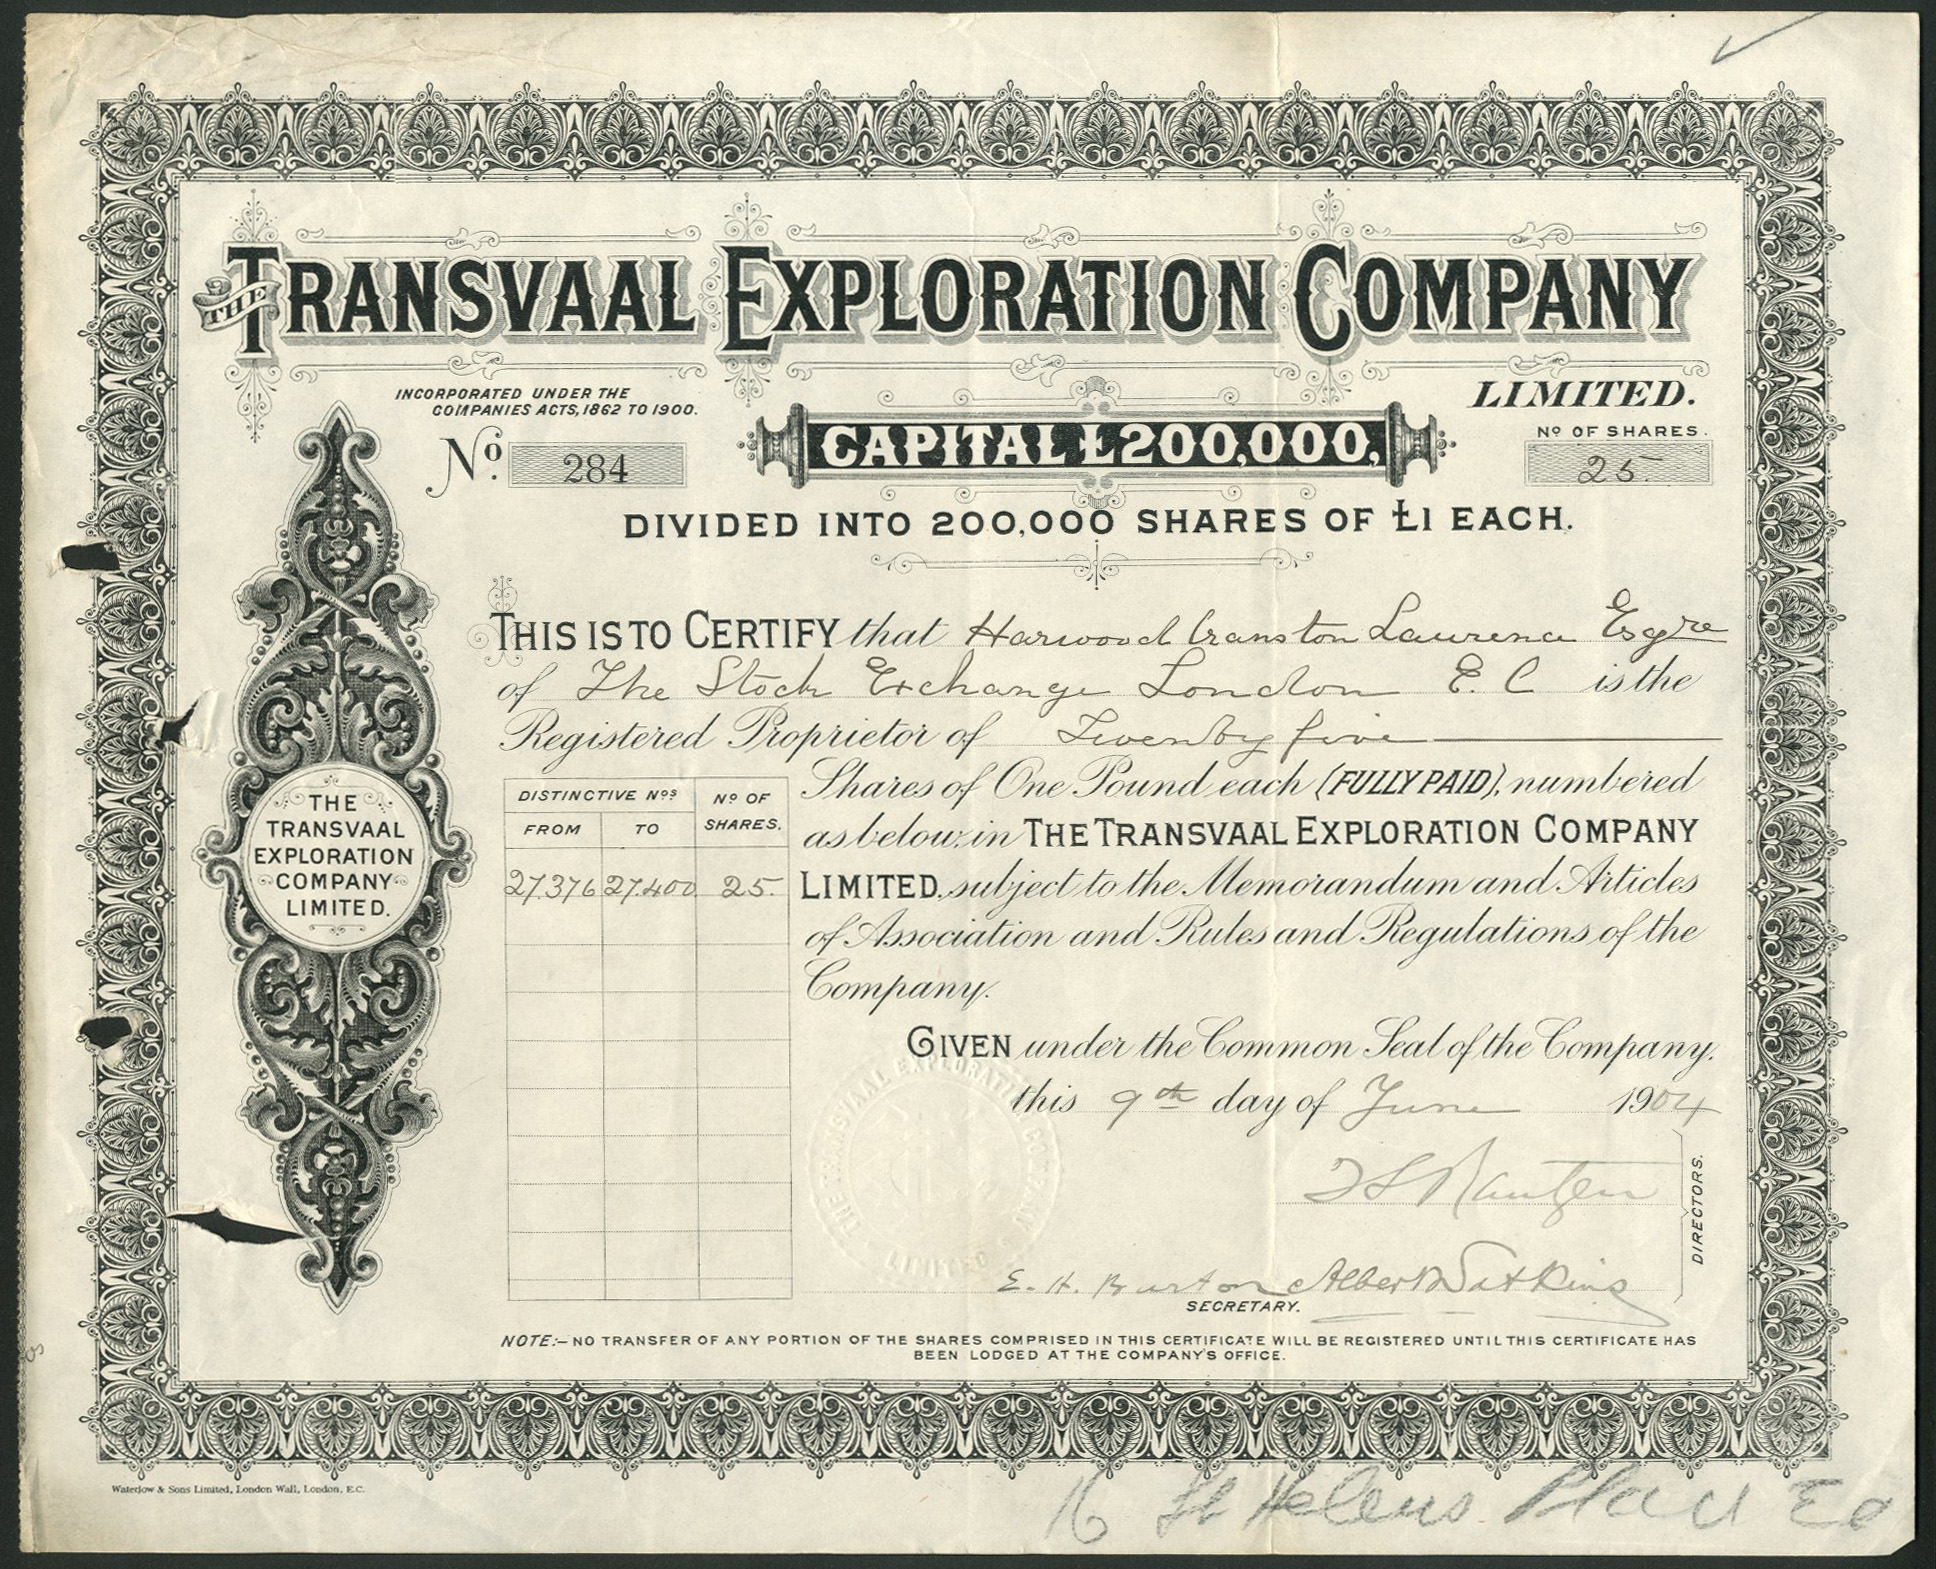 THE TRANSVAAL EXPLORATION COMPANY
LIMITED.
INCORPORATED UNDER THE
COMPANIES ACTS, 1862 TO 1900.
No. 284
CAPITAL £200,000,
No OF SHARES.
25
DIVIDED INTO 200,000 SHARES OF £1 EACH.
THIS IS TO CERTIFY that Harwood Cranston Laurence Esqre
of The Stock Exchange London E.C is the
Registered Proprietor of Twenty five
Shares of One Pound each (FULLY PAID), numbered
as below, in THE TRANSVAAL EXPLORATION COMPANY
LIMITED, subject to the Memorandum and Articles
of Association and Rules and Regulations of the
Company.
DISTINCTIVE Nos No OF SHARES.
FROM TO
27.376 27.400 25.
THE
TRANSVAAL
EXPLORATION
COMPANY
LIMITED.
GIVEN under the Common Seal of the Company.
this 9th day of June 1904
THE TRANSVAAL EXPLORATION COMPANY LIMITED
DIRECTORS.
E. H. Burton Albert Watkins
SECRETARY.
NOTE:- NO TRANSFER OF ANY PORTION OF THE SHARES COMPRISED IN THIS CERTIFICATE WILL BE REGISTERED UNTIL THIS CERTIFICATE HAS
BEEN LODGED AT THE COMPANY'S OFFICE.
Waterlow & Sons Limited, London Wall, London, E.C.
16 St Helens Place EC